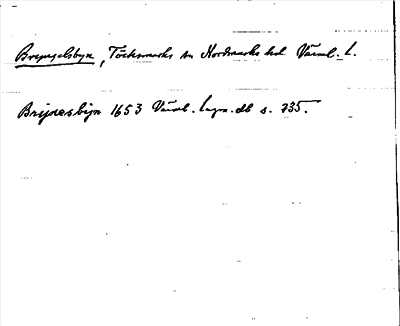 Brengelsbyn, Töcksmarks sn Nordmarks hd Värml. L.
Brijnesbyn 1653 Värml. Lagm. db s. 735.